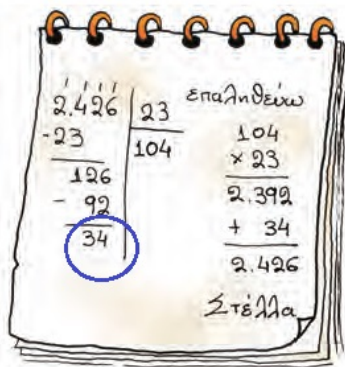 2.426 23
-23 104
126
- 92
34
επαληθεύω
104
× 23
2.392
+ 34
2.426
Στέλλα